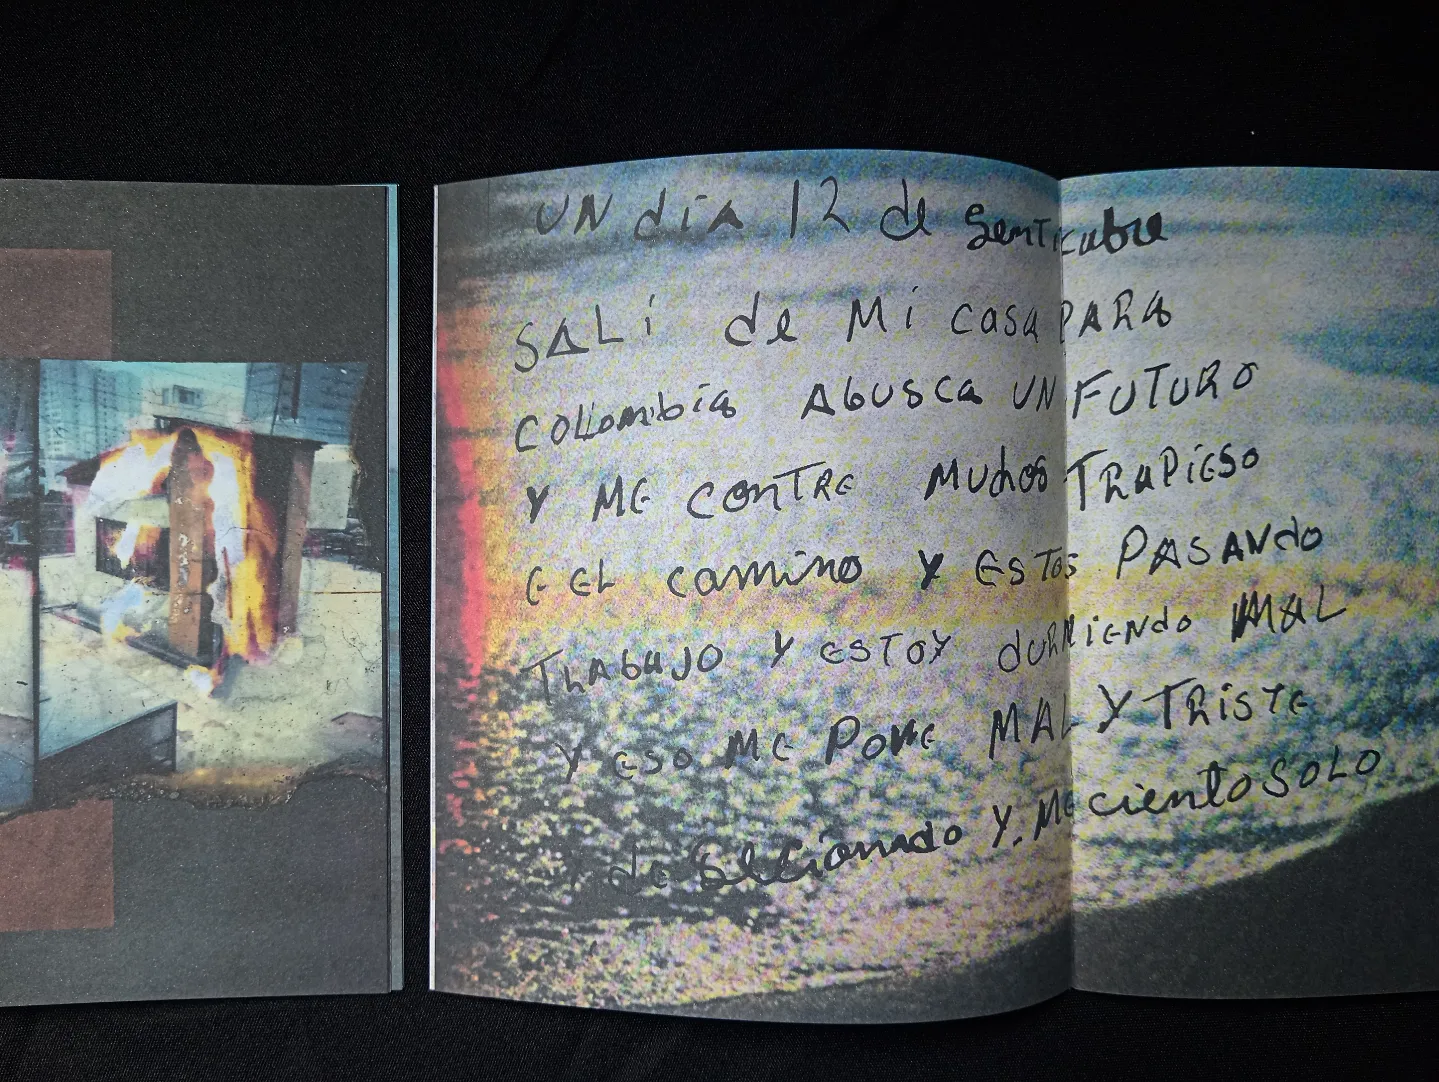 UN dia 12 de Semticubre
SALi de Mi casa PARA
COLLombia AbUSCa UN FUTURO
Y ME CONTRE MUchos TRaPiESO
E EL camino Y ESTOS PASANdo
TRAbUJO Y ESTOY dURMiENdo MAL
Y ESO ME PONE MAL Y TRiSTE
de Y. ME cientO SOLO